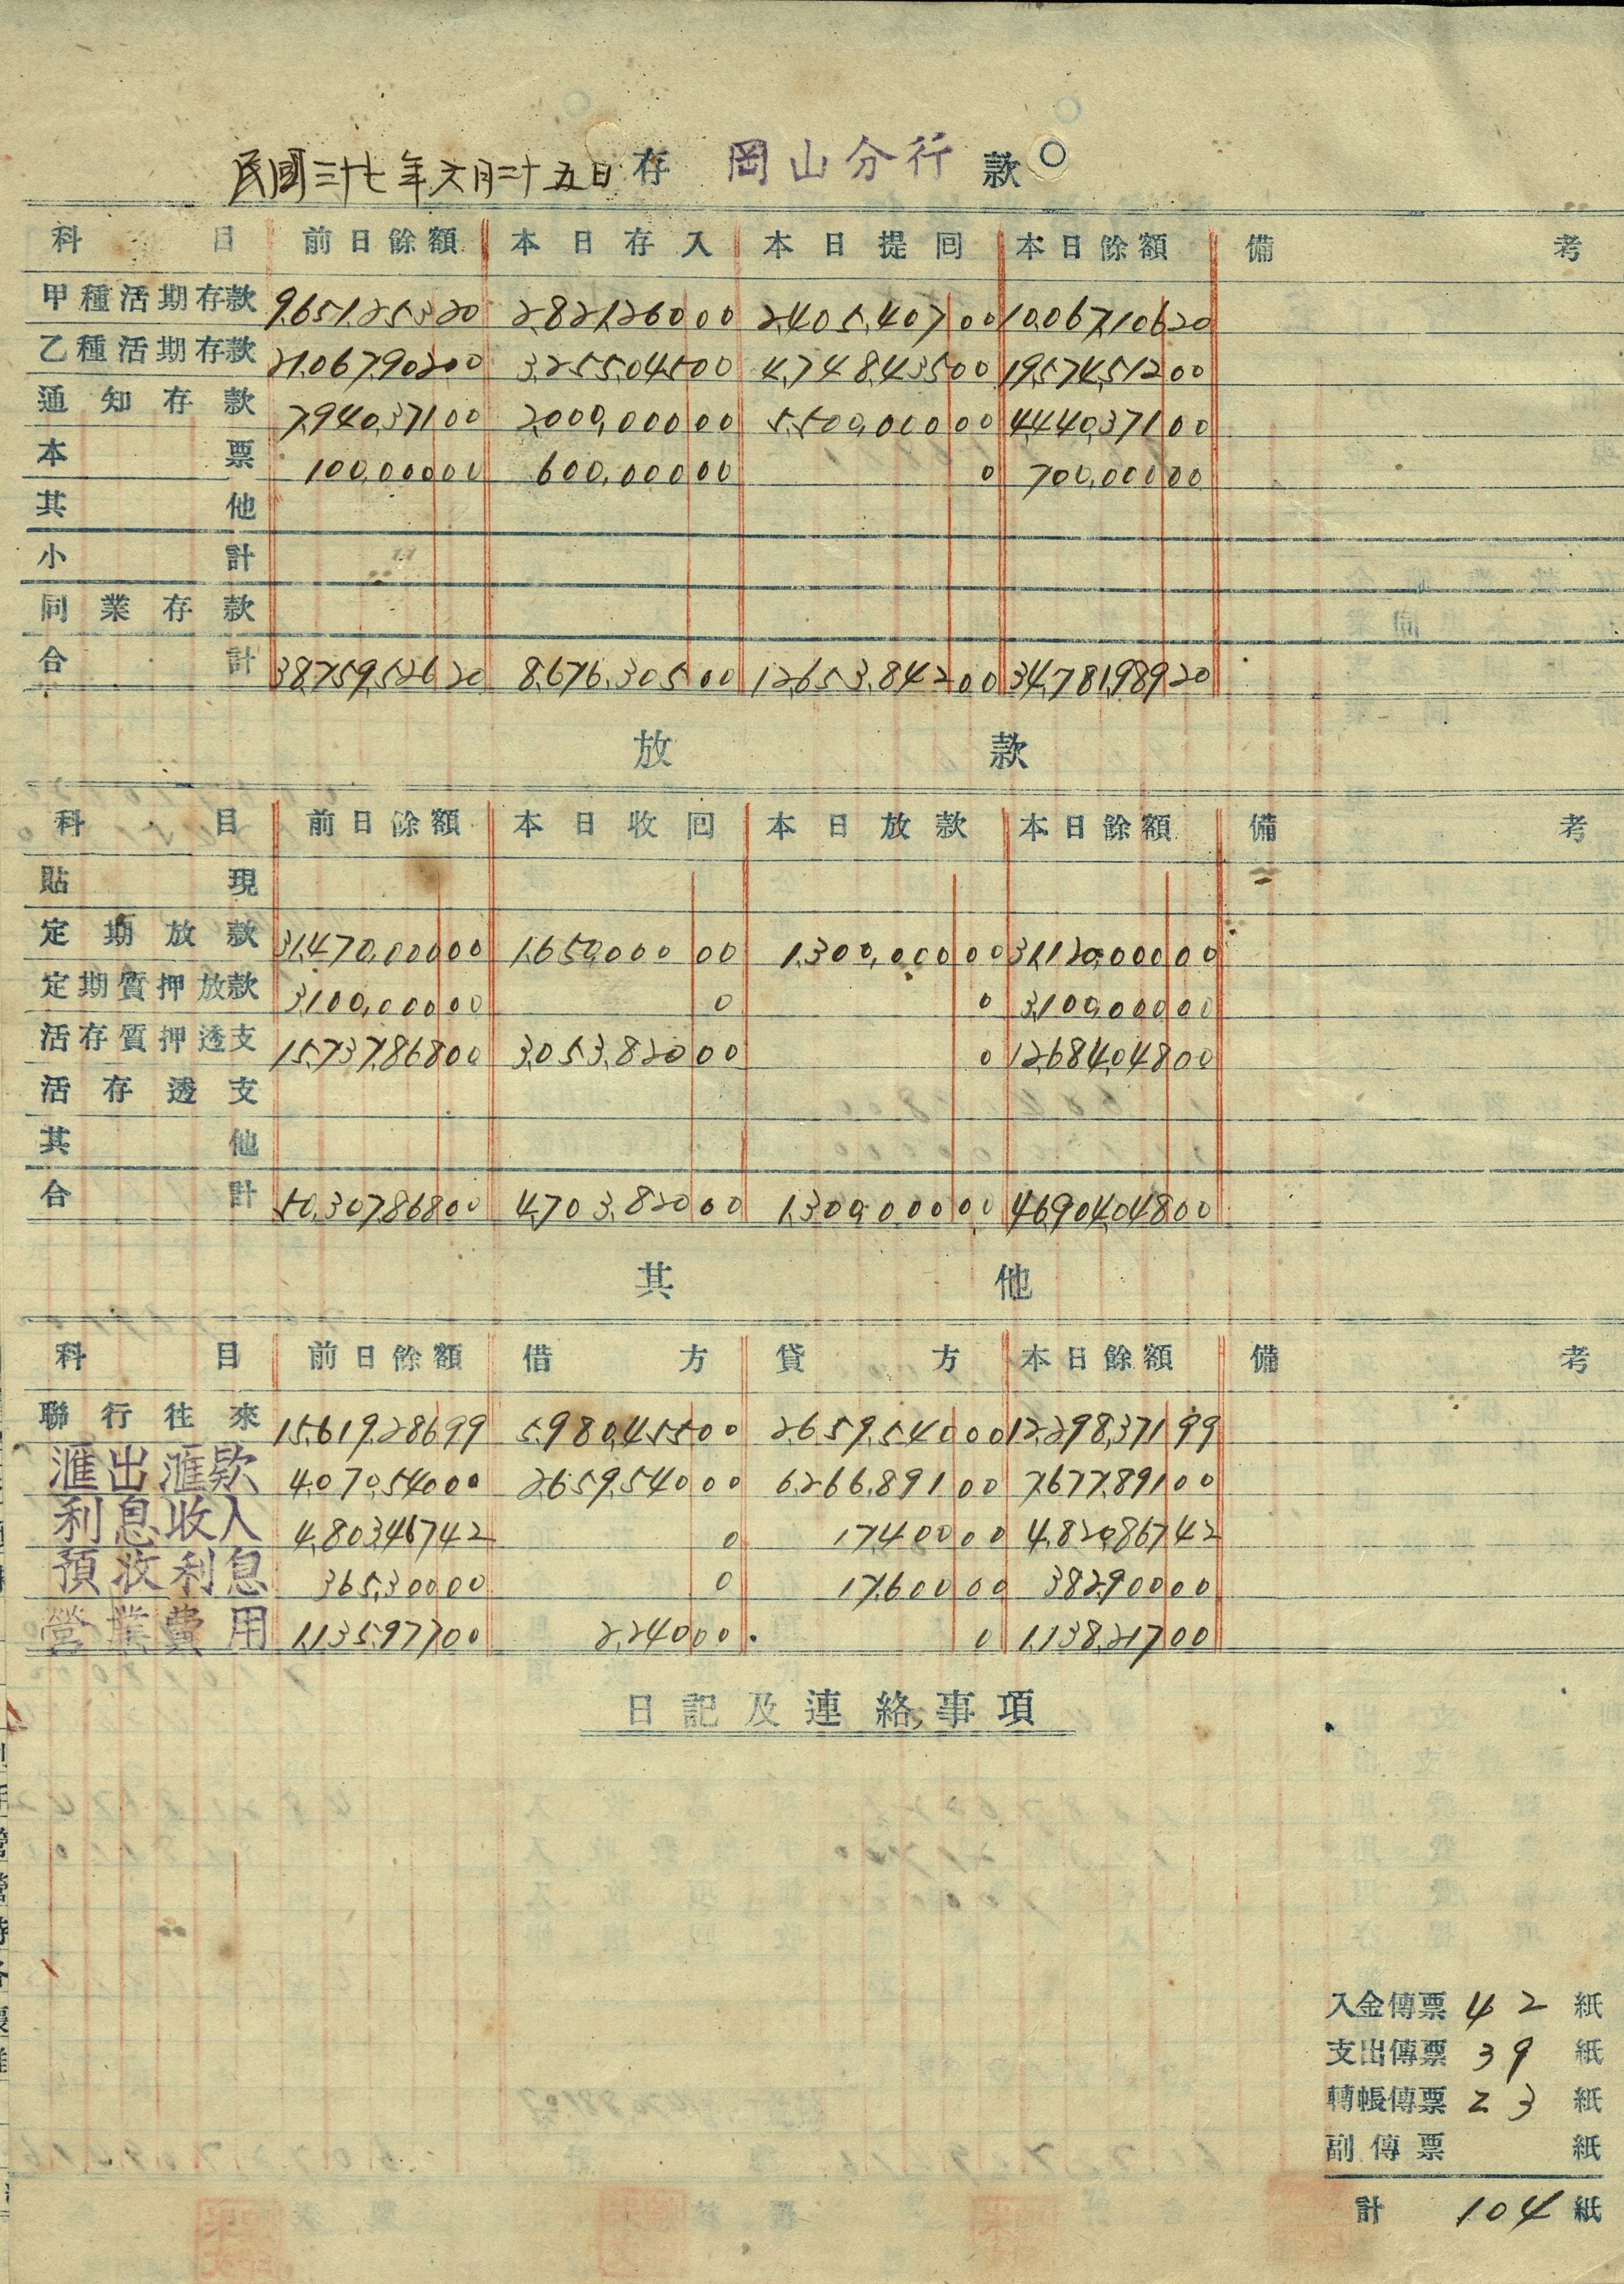 民國三十七年六月二十五日 存 岡山分行 款
科目 前日餘額 本日存入 本日提回 本日餘額 備考
甲種活期存款 9,651,253.20 2,821,260.00 2,405,407.00 10,067,106.20
乙種活期存款 21,067,902.00 3,255,045.00 4,748,435.00 19,574,512.00
通知存款 7,940,371.00 2,000,000.00 5,500,000.00 4,440,371.00
本票 100,000.00 600,000.00 0 700,000.00
其他
小計
同業存款
合計 38,759,526.20 8,676,305.00 12,653,842.00 34,781,989.20
放款
科目 前日餘額 本日收回 本日放款 本日餘額 備考
貼現
定期放款 31,470,000.00 1,650,000.00 1,300,000.00 31,120,000.00
定期質押放款 3,100,000.00 0 0 3,100,000.00
活存質押透支 15,737,868.00 3,053,820.00 0 12,684,048.00
活存透支
其他
合計 50,307,868.00 4,703,820.00 1,300,000.00 46,904,048.00
其他
科目 前日餘額 借方 貸方 本日餘額 備考
聯行往來 15,619,286.99 5,980,455.00 2,659,540.00 12,298,371.99
滙出滙款 4,070,540.00 2,659,540.00 6,266,891.00 7,677,891.00
利息收入 4,803,467.42 0 17,400.00 4,820,867.42
預收利息 365,300.00 0 17,600.00 382,900.00
營業費用 1,135,977.00 2,240.00 0 1,138,217.00
日記及連絡事項
入金傳票 42 紙
支出傳票 39 紙
轉帳傳票 23 紙
副傳票 紙
計 104 紙